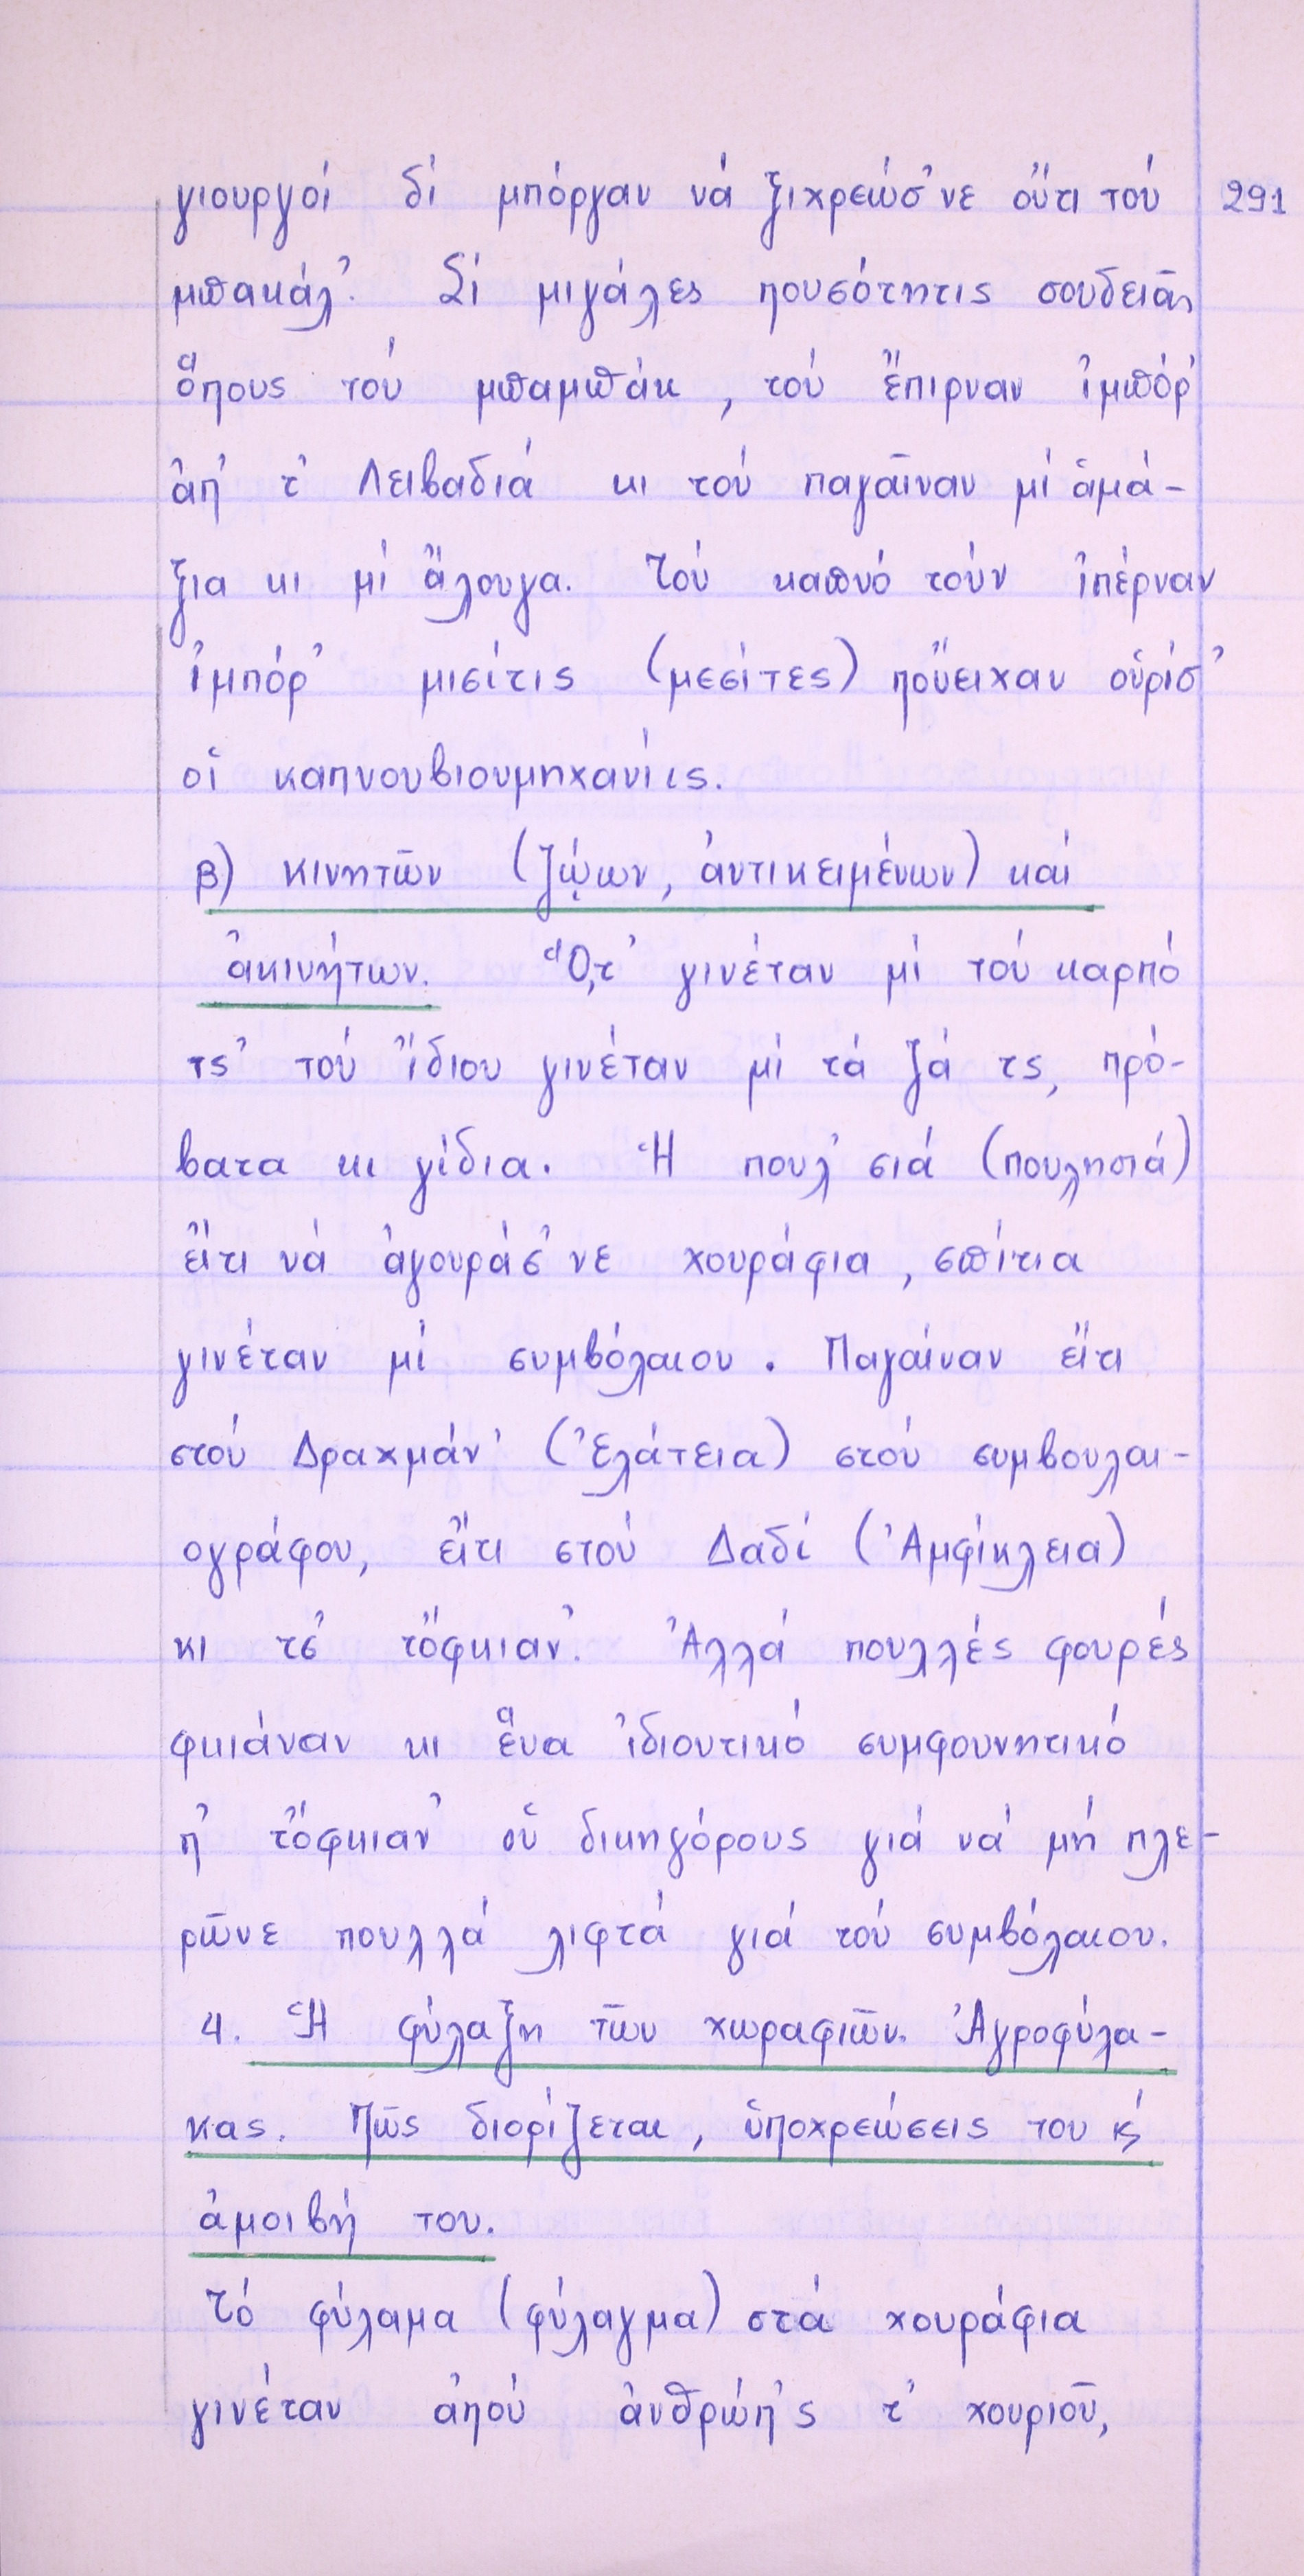 γιουργοί δέ μπόργαν νά ξιχρεώσ'νε οὔτι τού 291
μπακάλ'. Σί μιγάλες πουσότητις σουδειᾶς
ὅπους τού μπαμπάκ, τού ἔπιρναν ἰμπόρ'
ἀπ' τ' Λειβαδιά κι τού παγαῖναν μί ἁμά-
ξια κι μί ἄλουγα. Τού καπνό τούν ἰπέρναν
ἰμπόρ' μισίτις (μεσίτες) πὄειχαν οὑρίσ'
οἱ καπνουβιουμηχανίις.
β) κινητῶν (ζῴων, ἀντικειμένων) καί
ἀκινήτων. Ὅ,τ' γινέταν μί τού καρπό
τς' τού ἴδιου γινέταν μί τά ζά τς, πρό-
βατα κι γίδια. Ἡ πουλ'σιά (πουλησιά)
εἴτι νά ἀγουράσ'νε χουράφια, σπίτια
γινέταν μί συμβόλαιου. Παγαίναν εἴτι
στού Δραχμάν' (Ἐλάτεια) στού συμβουλαι-
ογράφου, εἴτι στού Δαδί (Ἀμφίκλεια)
κι τσ' τὄφκιαν'. Ἀλλά πουλλές φουρές
φκιάναν κι ἕνα ἰδιουτικό συμφουνητικό
π' τὄφκιαν' οὑ δικηγόρους γιά νά μή πλε-
ρῶνε πουλλά λιφτά γιά τού συμβόλαιου.
4. Ἡ φύλαξη τῶν χωραφιῶν. Ἀγροφύλα-
κας. Πῶς διορίζεται, ὑποχρεώσεις του κ'
ἀμοιβή του.
Τό φύλαμα (φύλαγμα) στά χουράφια
γινέταν ἀπού ἀνθρώπ'ς τ' χουριοῦ,